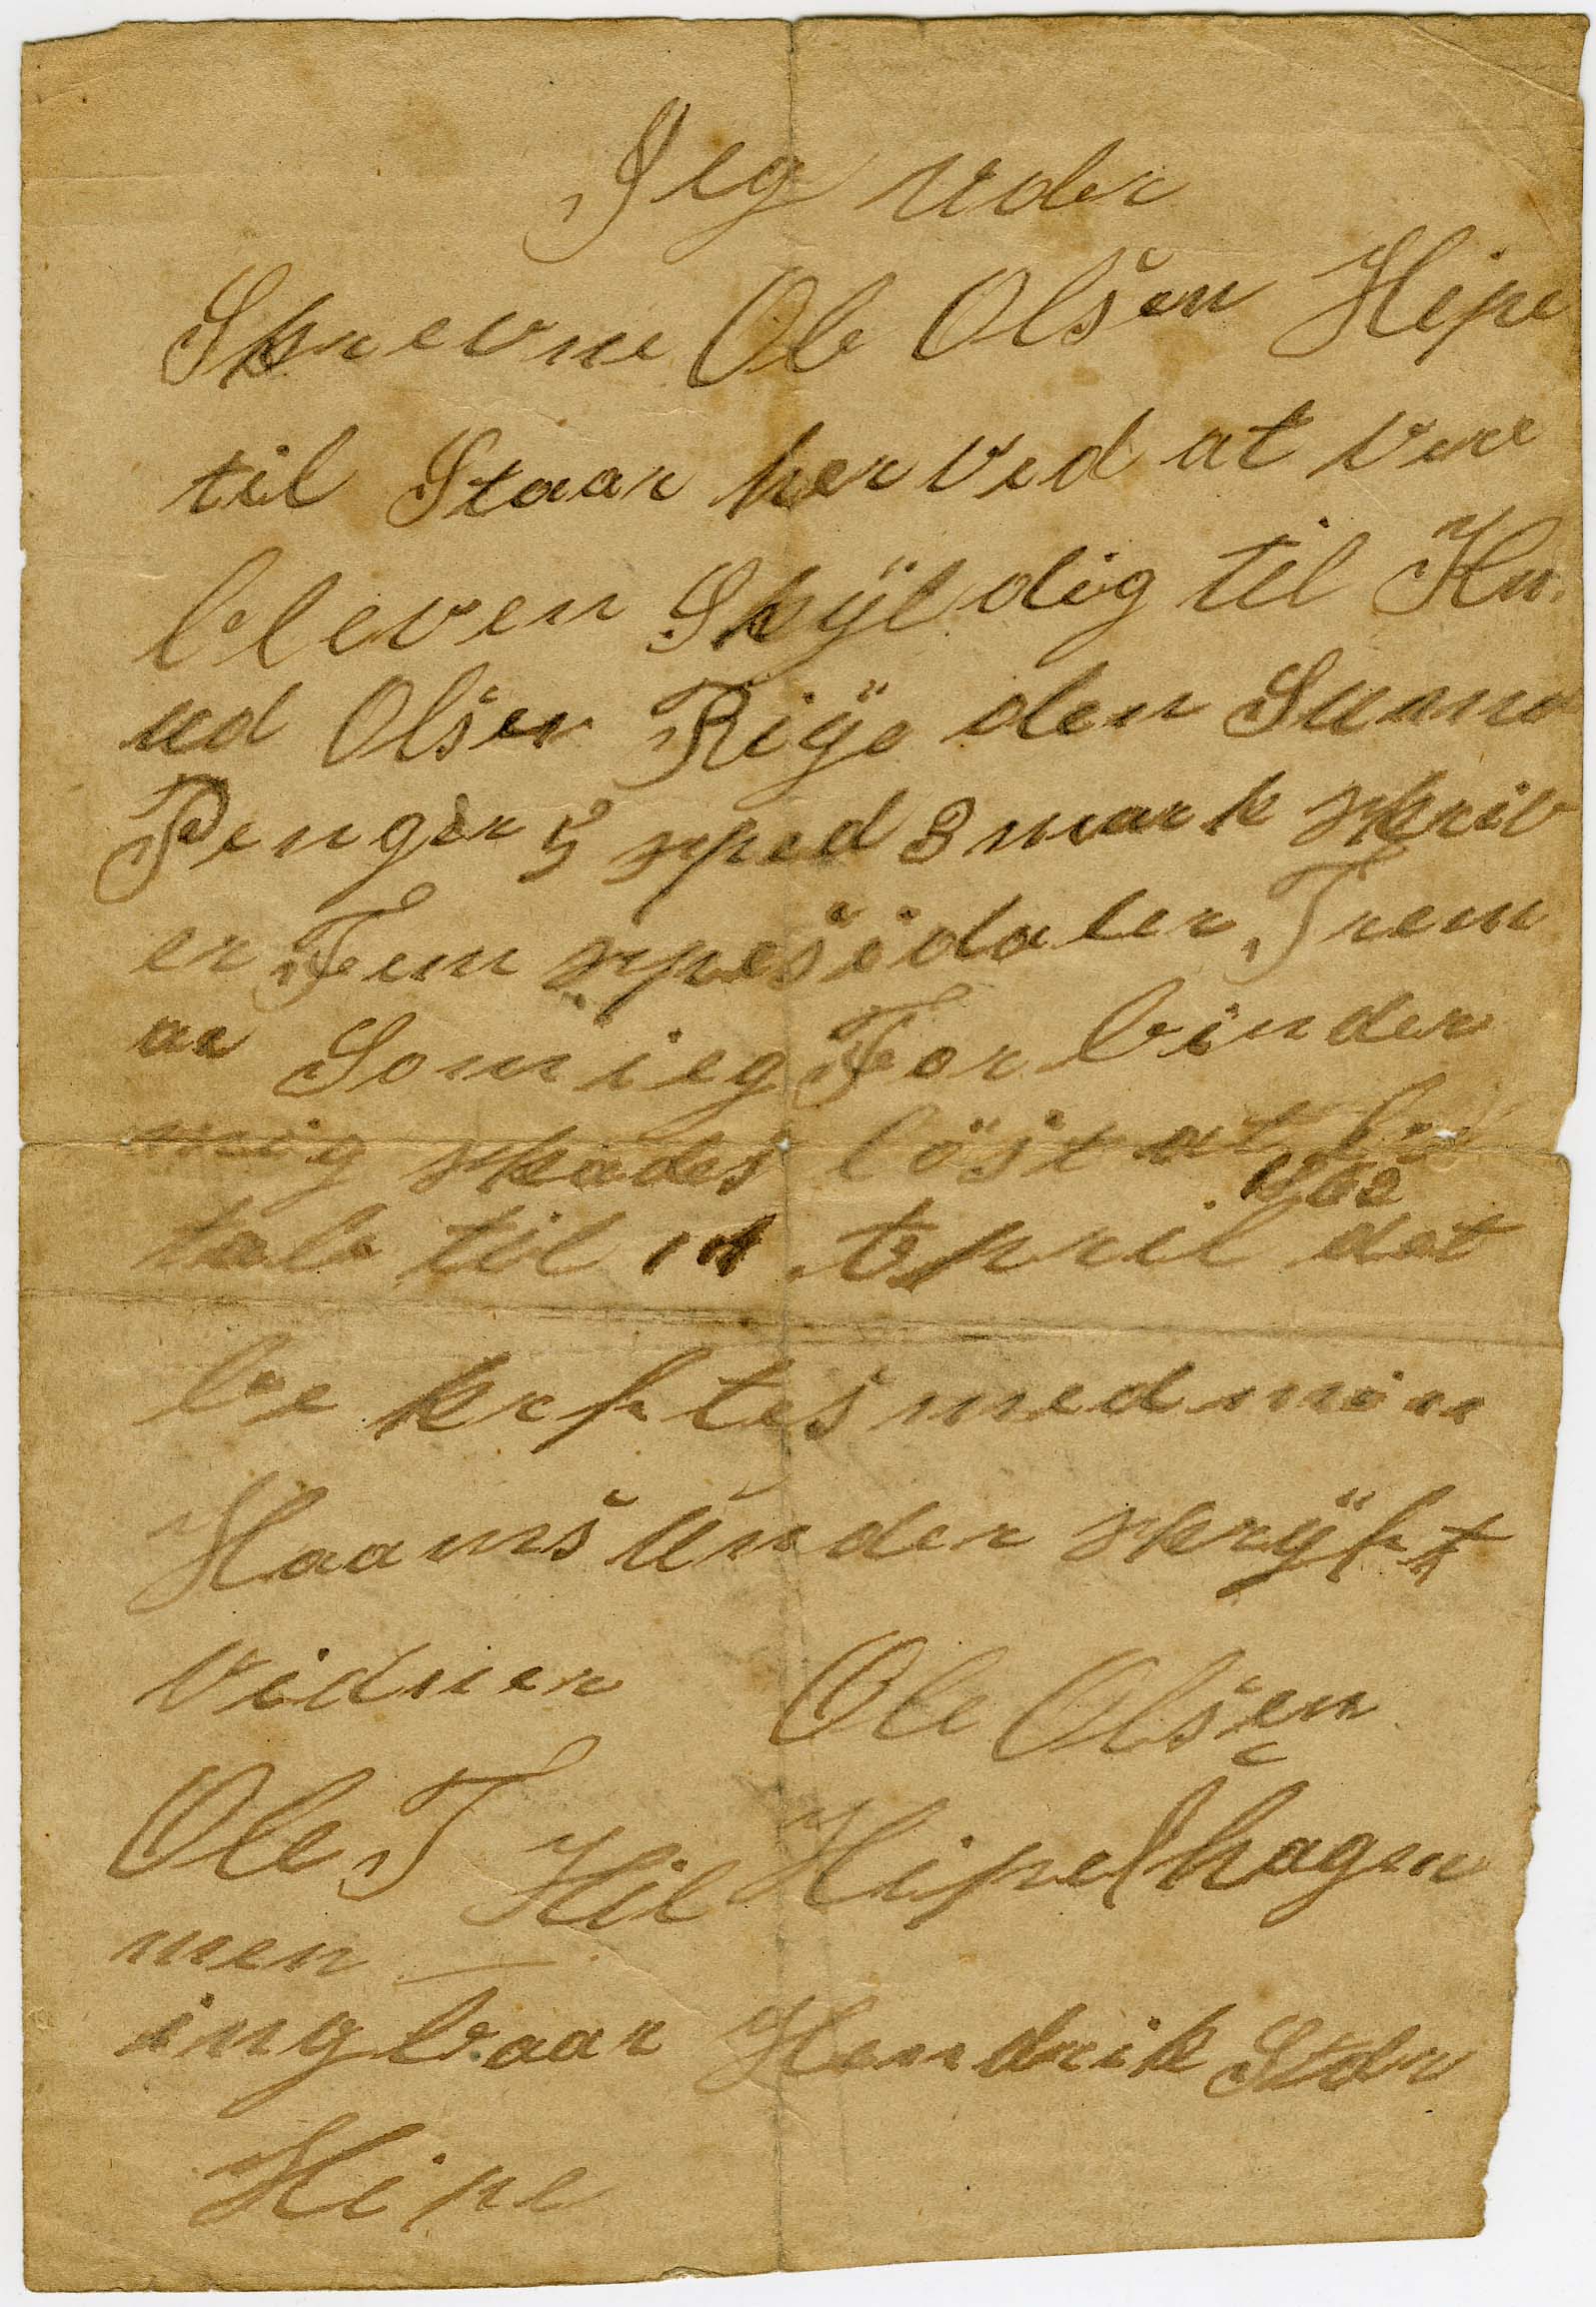 Jeg uder
Skrevne Ole Olsen Hipe
til Staar her Ved at vere
bleven Skÿldig til Kn.
ud Olsen Rige den Sumo
Penger 5 sped 3 mark skriv
er Fem spesidaler Trem
ar Som ieg For binder
mig skades löst at be
1862
tale til 14 April det
be krftes med min
Haans under skrÿft
vidner Ole Olsen
Ole T Hil Hipe hagen
men
ingbaar Hendrik Stolr
Hipe